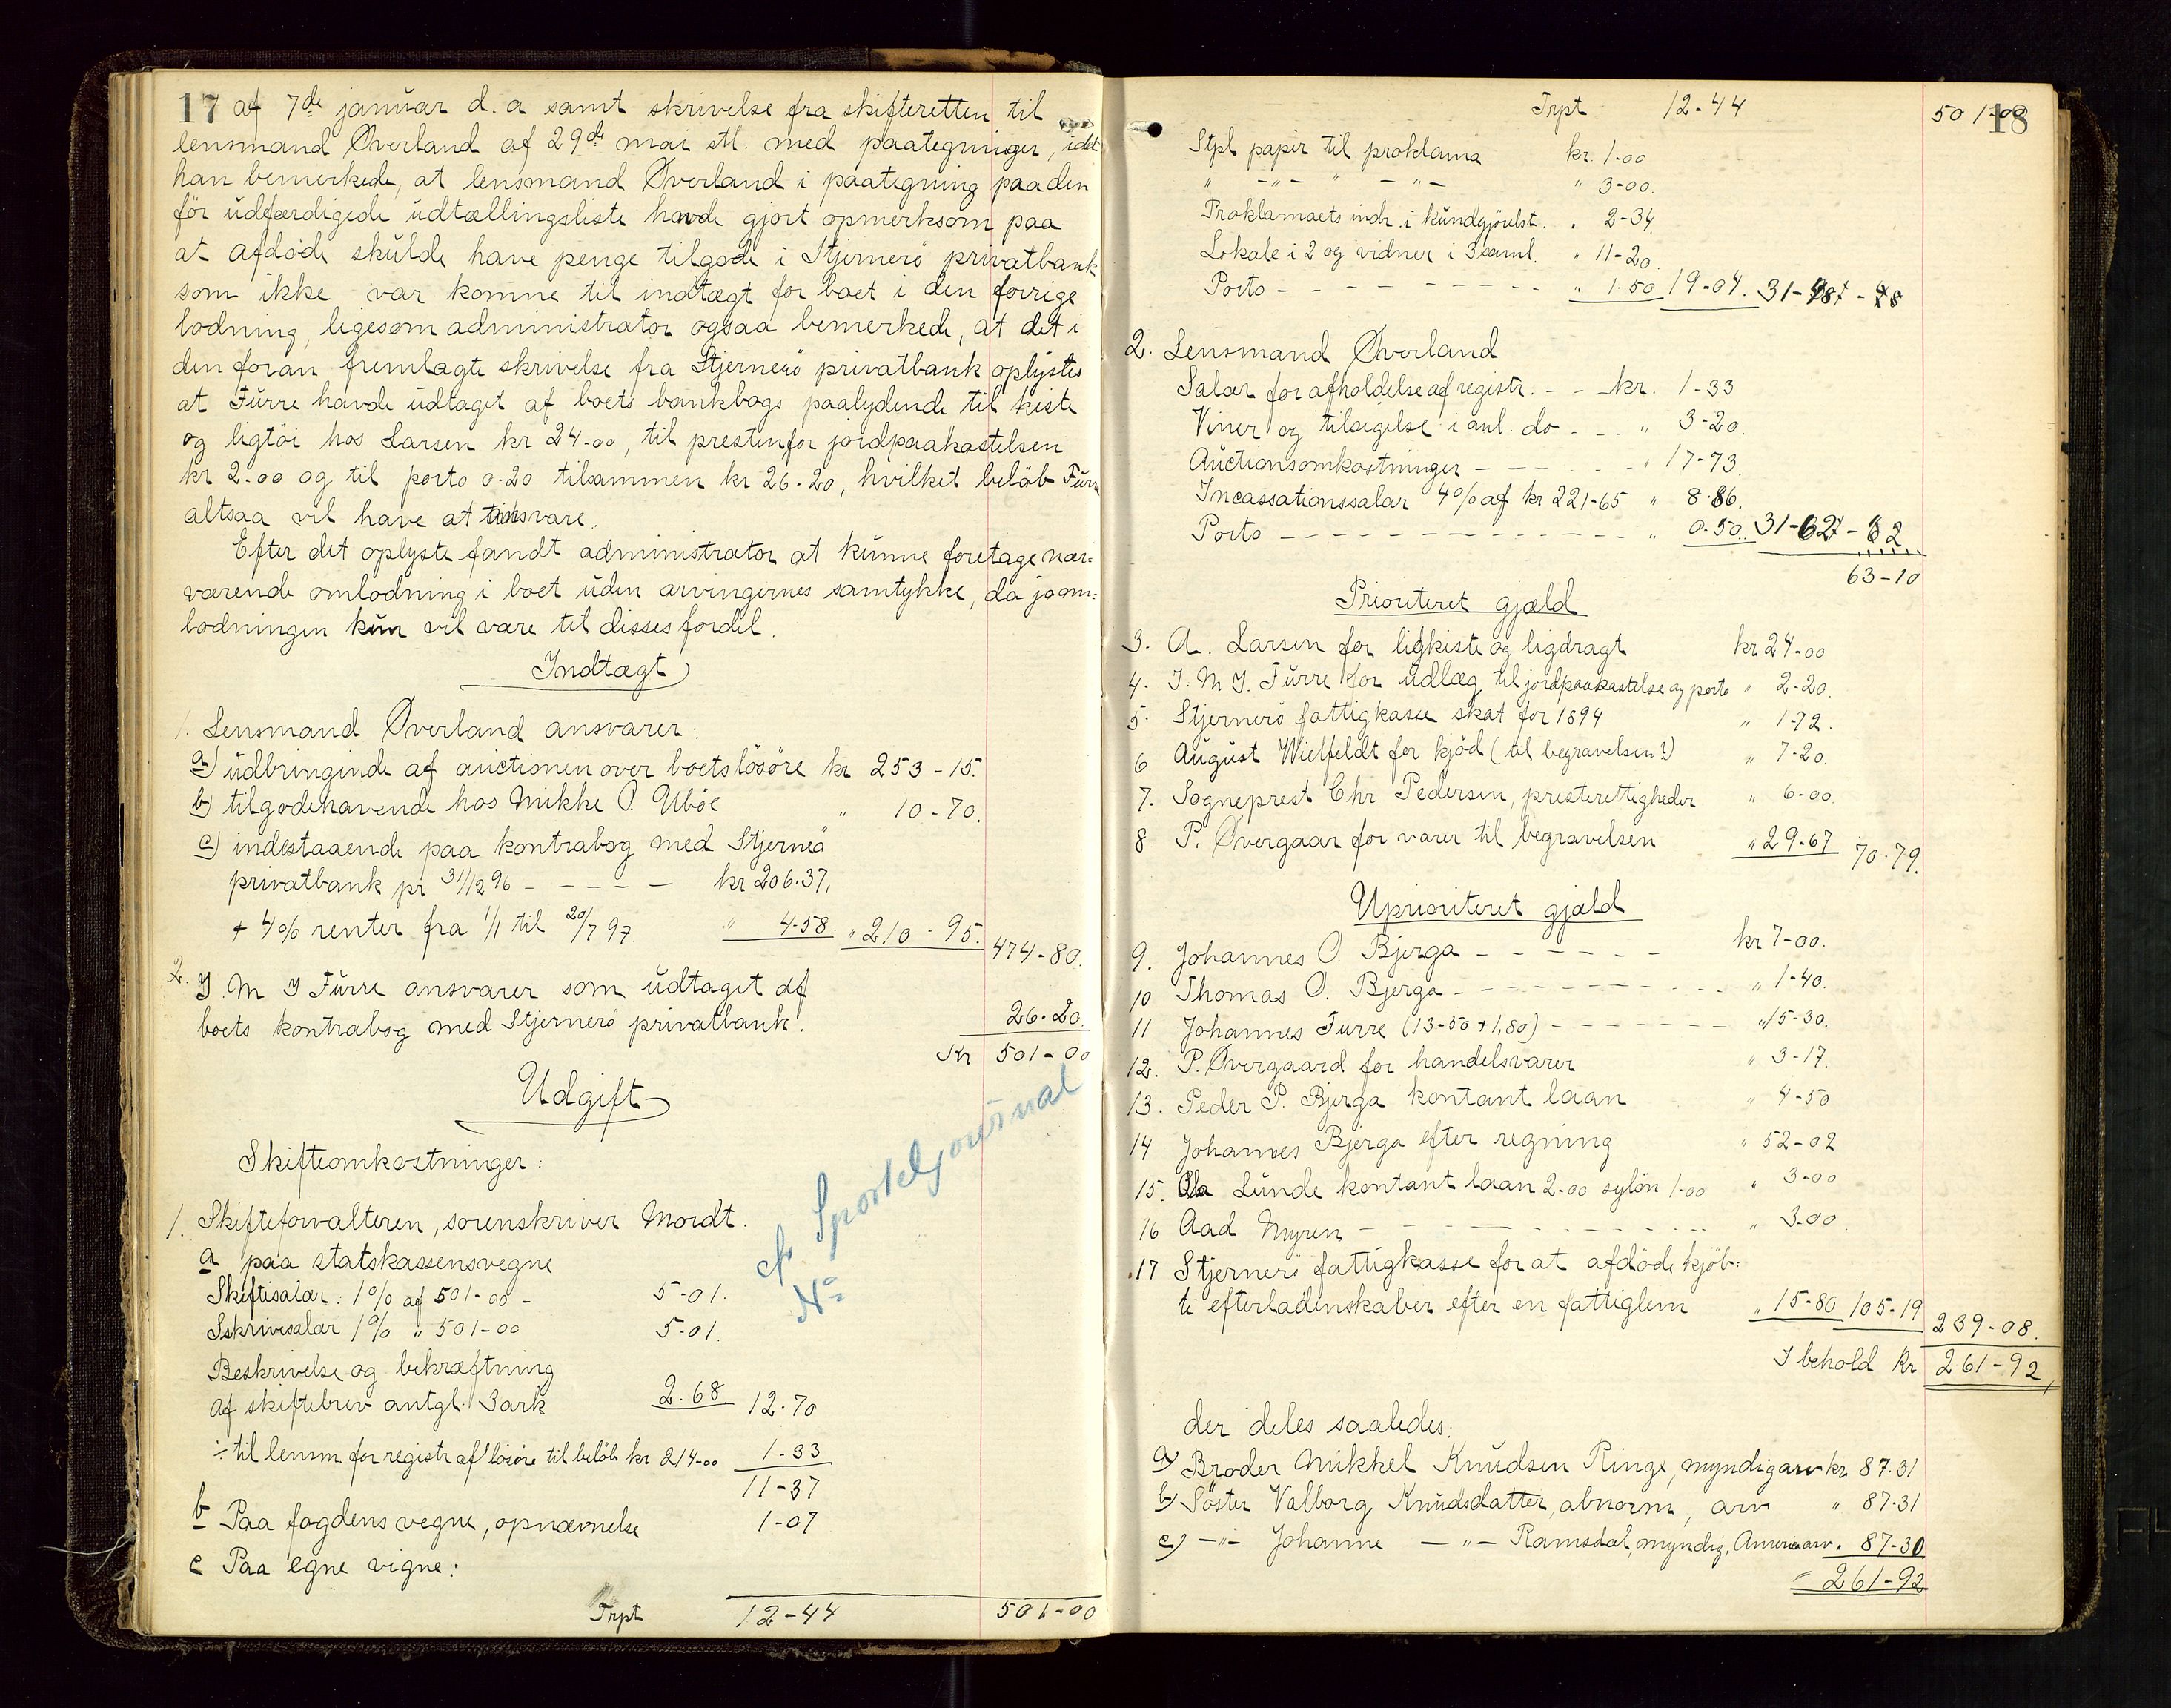 17 af 7de januar d. a samt skrivelse fra skifteretten til
lensmand Øverland af 29de mai stl. med paategninger, idet
han bemerkede, at lensmand Øverland i paategning paa den
før udfærdigede udtællingsliste havde gjort opmerksom paa
at afdøde skulde have penge tilgode i Stjernerø privatbank
som ikke var komne til indtægt for boet i den forrige
lodning, ligesom administrator ogsaa bemerkede, at det i
den foran fremlagte skrivelse fra Stjernerø privatbank oplystes
at Furre havde udtaget af boets bankbogs paalydende til kiste
og ligtöi hos Larsen kr 24-00, til presten for jordpaakastelsen
kr 2-00 og til porto 0-20 tilsammen kr 26-20, hvilket beløb Furre
altsaa vil have at tilsvare.
Efter det oplyste fandt administrator at kunne foretage nær-
værende omlodning i boet uden arvingernes samtykke, da jo om-
lodningen kun vil være til disses fordel.
Indtægt
1. Lensmand Øverland ansvarer:
a) udbringende af auctionen over boets løsøre kr 253-15.
b) tilgodehavende hos Mikkel O. Ubøe " 10-70.
c) indestaaende paa kontrabog med Stjernerø
privatbank pr 31/12 96 - - - - - kr 206.37.
+ 4% renter fra 1/1 til 20/7 97. " 4-58. " 210-95. 474-80.
2. J. M J Furre ansvarer som udtaget af
boets kontrabog med Stjernerø privatbank. 26-20.
Kr 501-00
Udgift
Skifteomkostninger:
cfr Sporteljournal
No
1. Skifteforvalteren, sorenskriver Mordt.
a paa statskassens vegne
Skiftesalær: 1% af 501-00 - 5-01.
Sskrivesalær 1% " 501-00 5-01.
Beskrivelse og bekræftning
af skiftebrev antgl. 3 ark 2.68 12.70
÷ til lensm for registr af løsøre til beløb kr 214-00 1-33
11-37
b Paa fogdens vegne, opnævnelse 1-07
c Paa egne vigne:
Trpt 12-44 501-00
Trpt 12-44 501-00 18
Stpl papir til proklama kr. 1-00
" -"- " -"- " 3-00.
Proklamaets indr. i kundgjørelst. " 2-34.
Lokale i 2 og vidner i 3 saml. " 11-20.
Porto - - - - - - - - - " 1.50 19-04. 31-48
2. Lensmand Øverland
Salær for afholdelse af registr. - - kr. 1-33
Viner og tilsigelse i anl. do - - - " 3-20.
Auctionsomkostninger - - - - - " 17-73.
Incassationssalær 4% af kr 221-65 " 8-86.
Porto - - - - - - - - - - - - " 0-50. 31-62
63-10
Prioriteret gjæld
3. A. Larsen for ligkiste og ligdragt kr 24-00
4. J. M J. Furre for udlæg til jordpaakastelse og porto " 2-20.
5. Stjernerø fattigkasse skat for 1894 " 1-72.
6 August Wielfeldt for kjød (til begravelsen?) " 7-20.
7. Sogneprest Chr Pedersen, presterettigheder " 6-00.
8 P. Øvergaar for varer til begravelsen " 29-67 70-79.
Uprioriteret gjæld
9. Johannes O. Bjerga - - - - - - kr 7-00.
10 Thomas O. Bjerga - - - - - - - - - " 1-40.
11 Johannes Furre (13-50 + 1,80) - - - - - - " 15-30.
12. P. Øvergaard for handelsvarer " 3-17.
13. Peder P. Bjerga kontant laan " 4-50
14 Johannes Bjerga efter regning " 52-02
15. Ola Lunde kontant laan 2-00 syløn 1-00 " 3-00
16 Aad Myren - - - - - - - - - " 3-00.
17 Stjernerø fattigkasse for at afdøde kjøb-
te efterladenskaber efter en fattiglem " 15-80 105-19 239-08.
I behold Kr 261-92
der deles saaledes:
a) Broder Mikkel Knudsen Ringe, myndig arv kr 87.31
b) Søster Valborg Knudsdatter, abnorm, arv " 87-31
c) -"- Johanne -"- Ramsdal, myndig, Amerika arv " 87-30
261-92